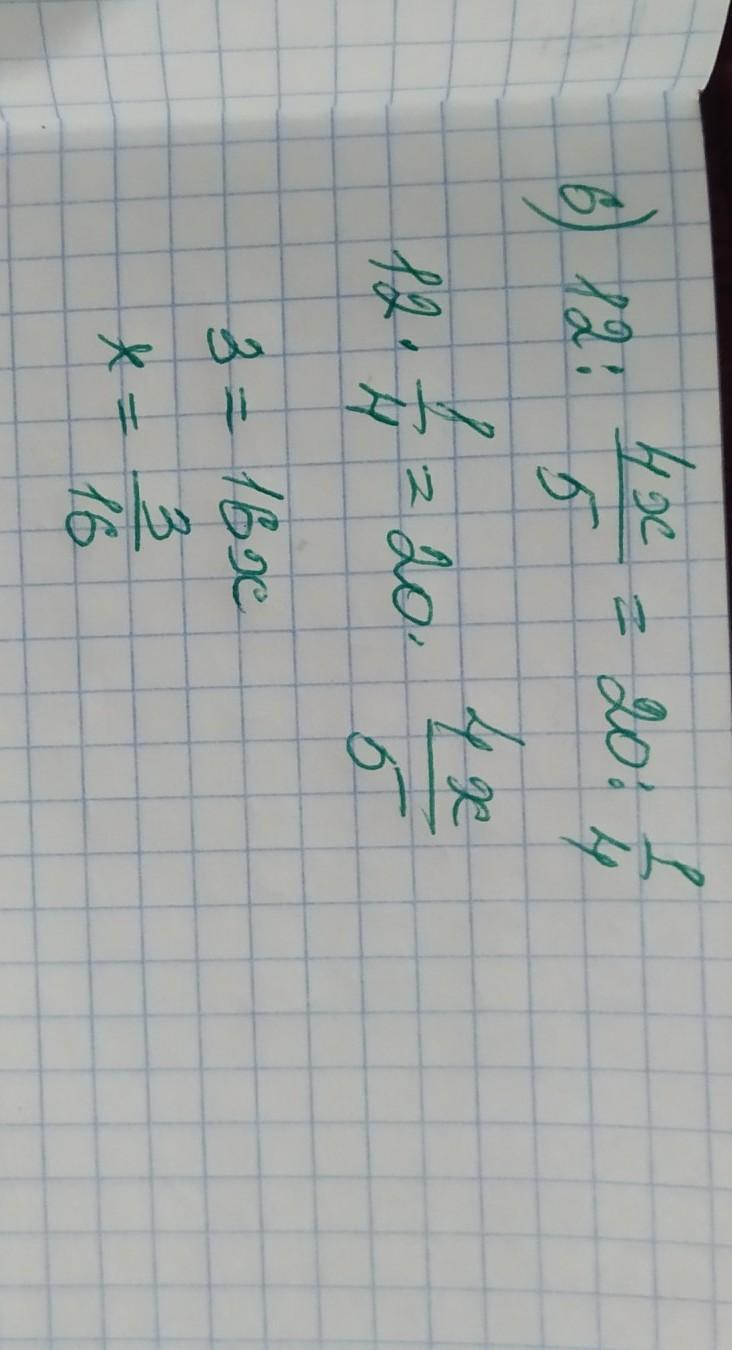 в) 12 : 4x/5 = 20 : 1/4
12 · 1/4 = 20 · 4x/5
3 = 16x
x = 3/16